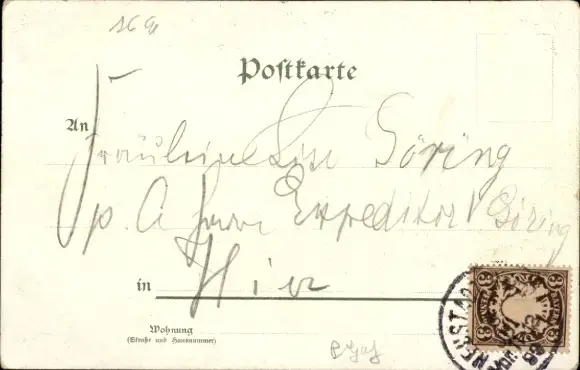 16 a
Postkarte
An
Fräulein Lise Göring
p. A. Herrn Expeditor Göring
in Hier
Wohnung
(Straße und Hausnummer)
3 3
BAYERN
3 3
NEUSTADT